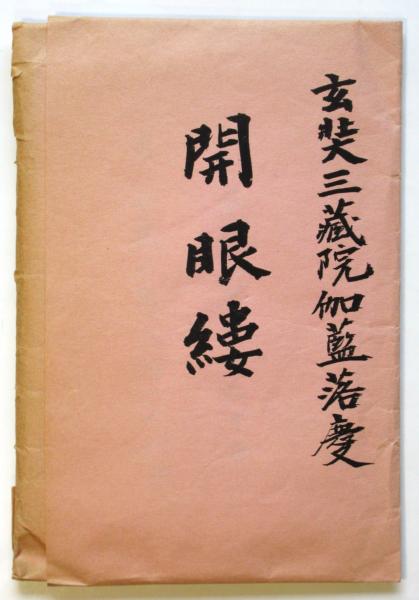 玄奘三藏院伽藍落慶
開眼縷